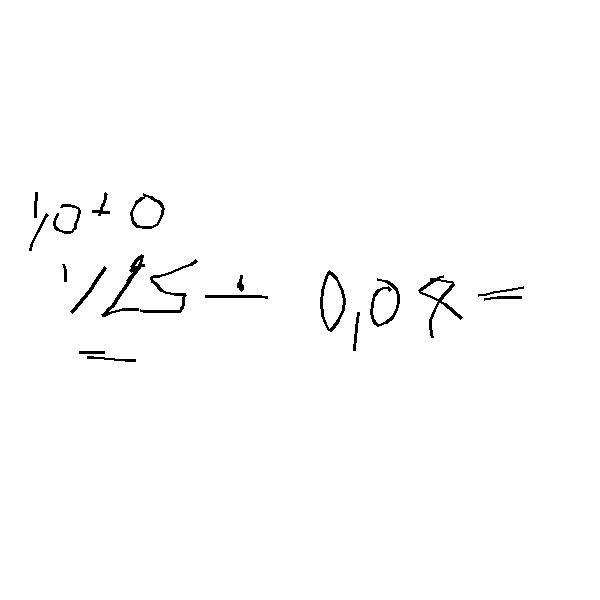 1,0+0
1/25 ÷ 0,08 =